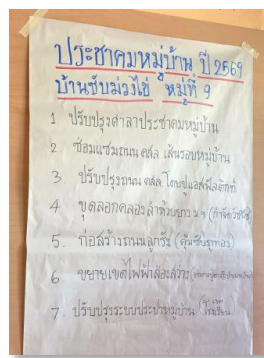 ประชาคมหมู่บ้าน ปี 2569
บ้านซับม่วงไข่ หมู่ที่ 9
1 ปรับปรุงศาลาประชาคมหมู่บ้าน
2. ซ่อมแซมถนน คสล เส้นรอบหมู่บ้าน
3 ปรับปรุงถนน คสล โดยปูแอสฟัลติกท์
4 ขุดลอกคลองลำห้วยยาง ม 9
5. ก่อสร้างถนนลูกรัง (คุ้มซับรุทอง)
6 ขยายเขตไฟฟ้าส่องสว่าง
7. ปรับปรุงระบบประปาหมู่บ้าน (โรงเรียน)